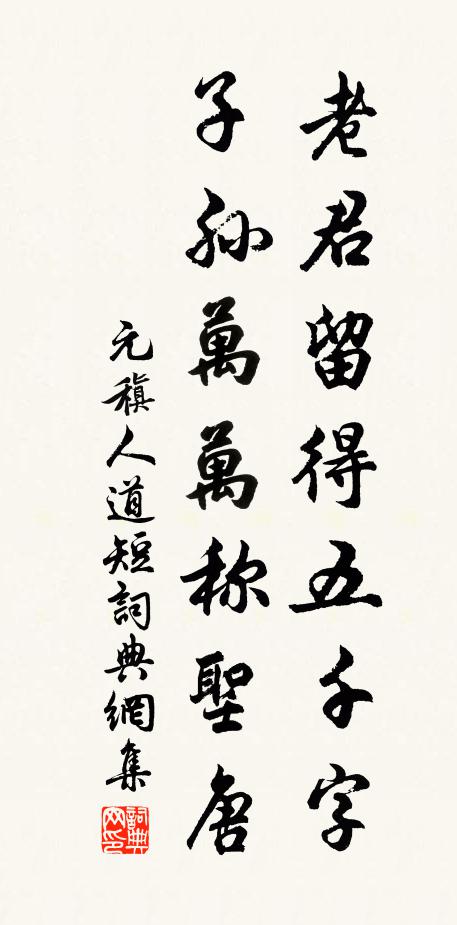 老君留得五千字
子孙萬萬称聖唐
元稹人道短詞典網集
詞典网印